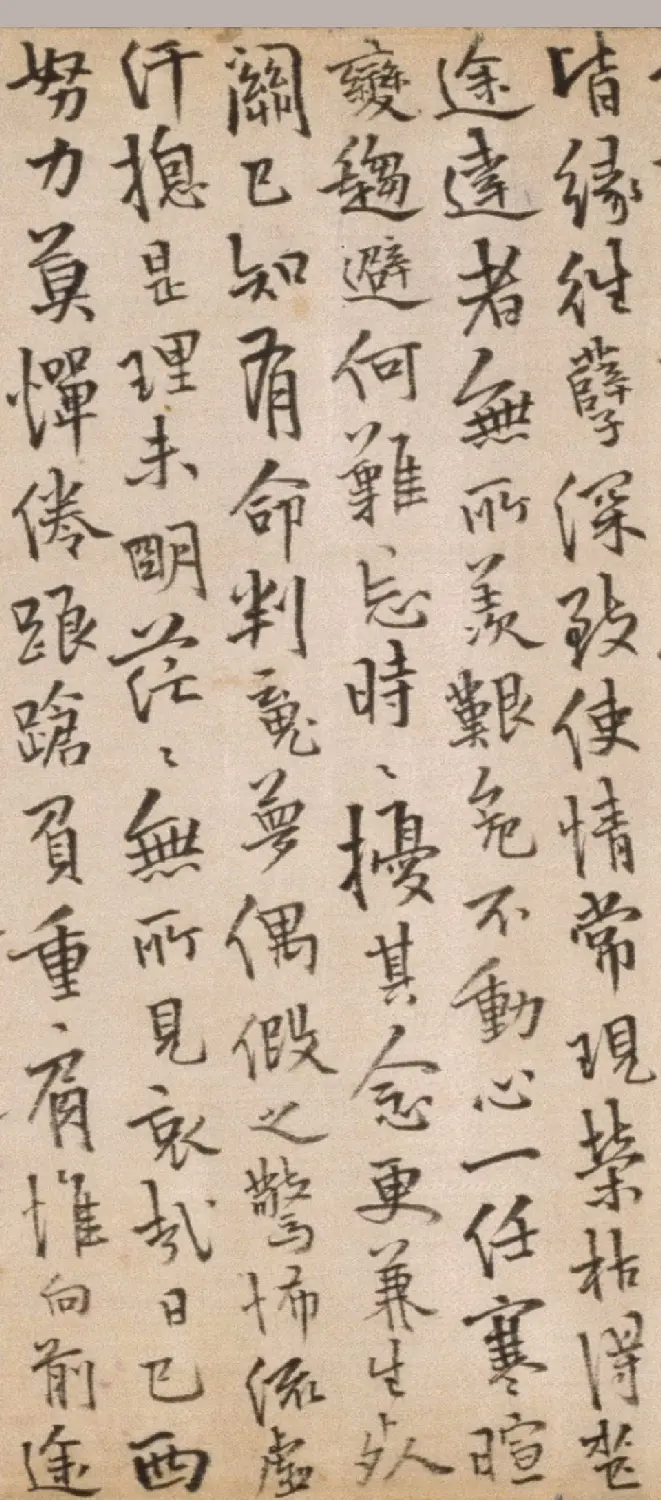 皆緣徃孽深致使情常現榮枯得喪
途達者無所羨艱危不動心一任寒暄
變趨避何難忘時〻擾其念更兼生死
關已知有命判魂夢偶假之驚怖流虛
汗揔是理未明茫〻無所見哀哉日已西
努力莫憚倦踉蹌負重肩惟向前途